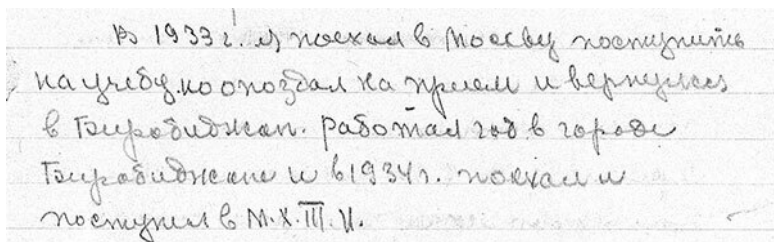 В 1933 г. я поехал в Москву поступить
на учебу, но опоздал на прием и вернулся
в Биробиджан. Работал год в городе
Биробиджане и в 1934 г. поехал и
поступил в М.Х.Т.И.